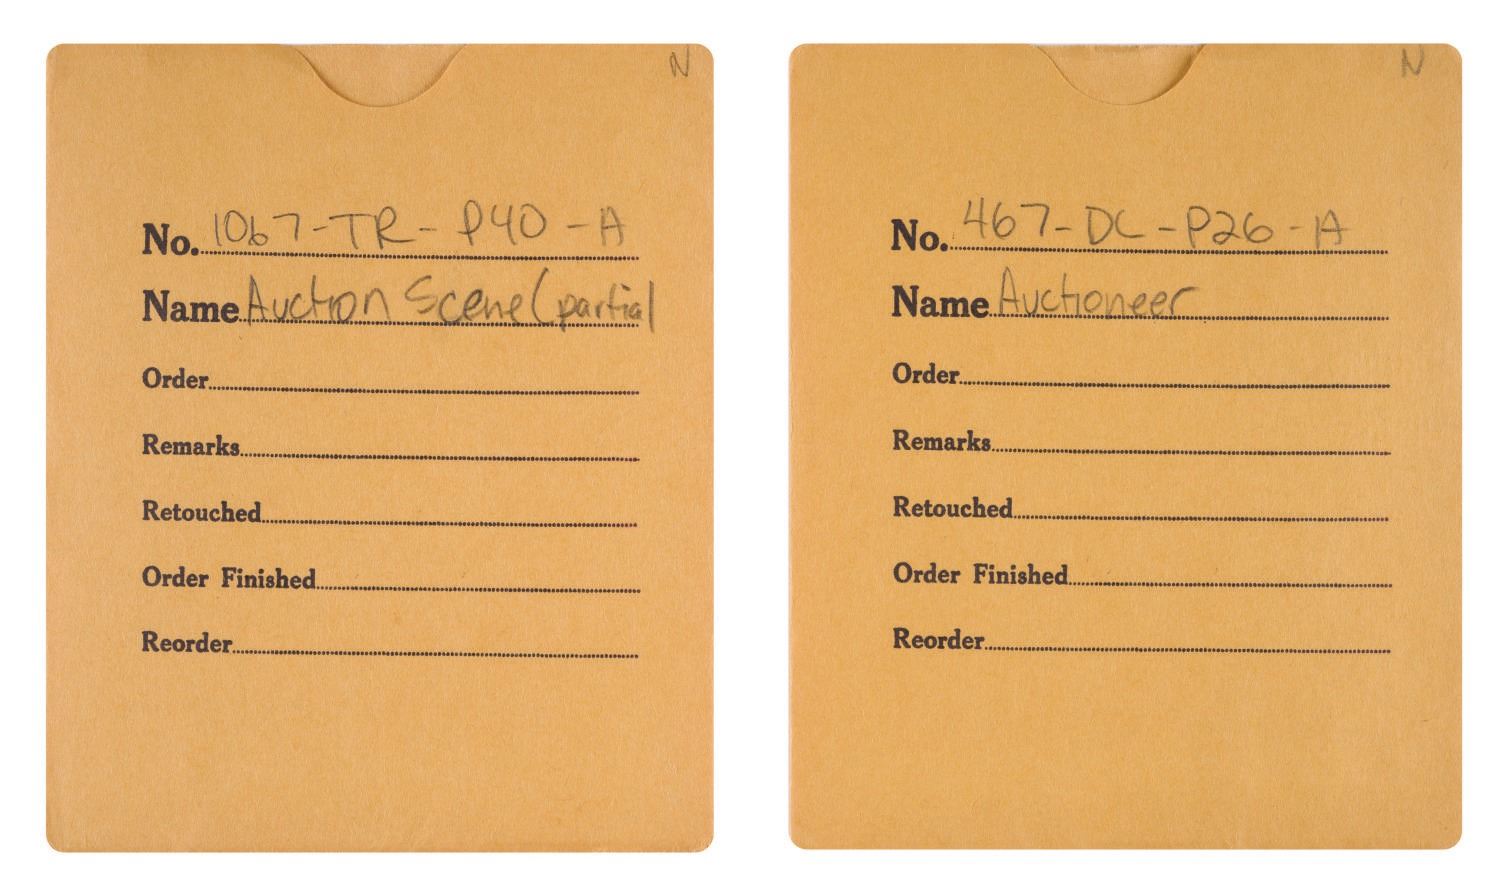 N
No. 1067-TR-P40-A
Name Auction Scene (partial
Order
Remarks
Retouched
Order Finished
Reorder
N
No. 467-DC-P26-A
Name Auctioneer
Order
Remarks
Retouched
Order Finished
Reorder